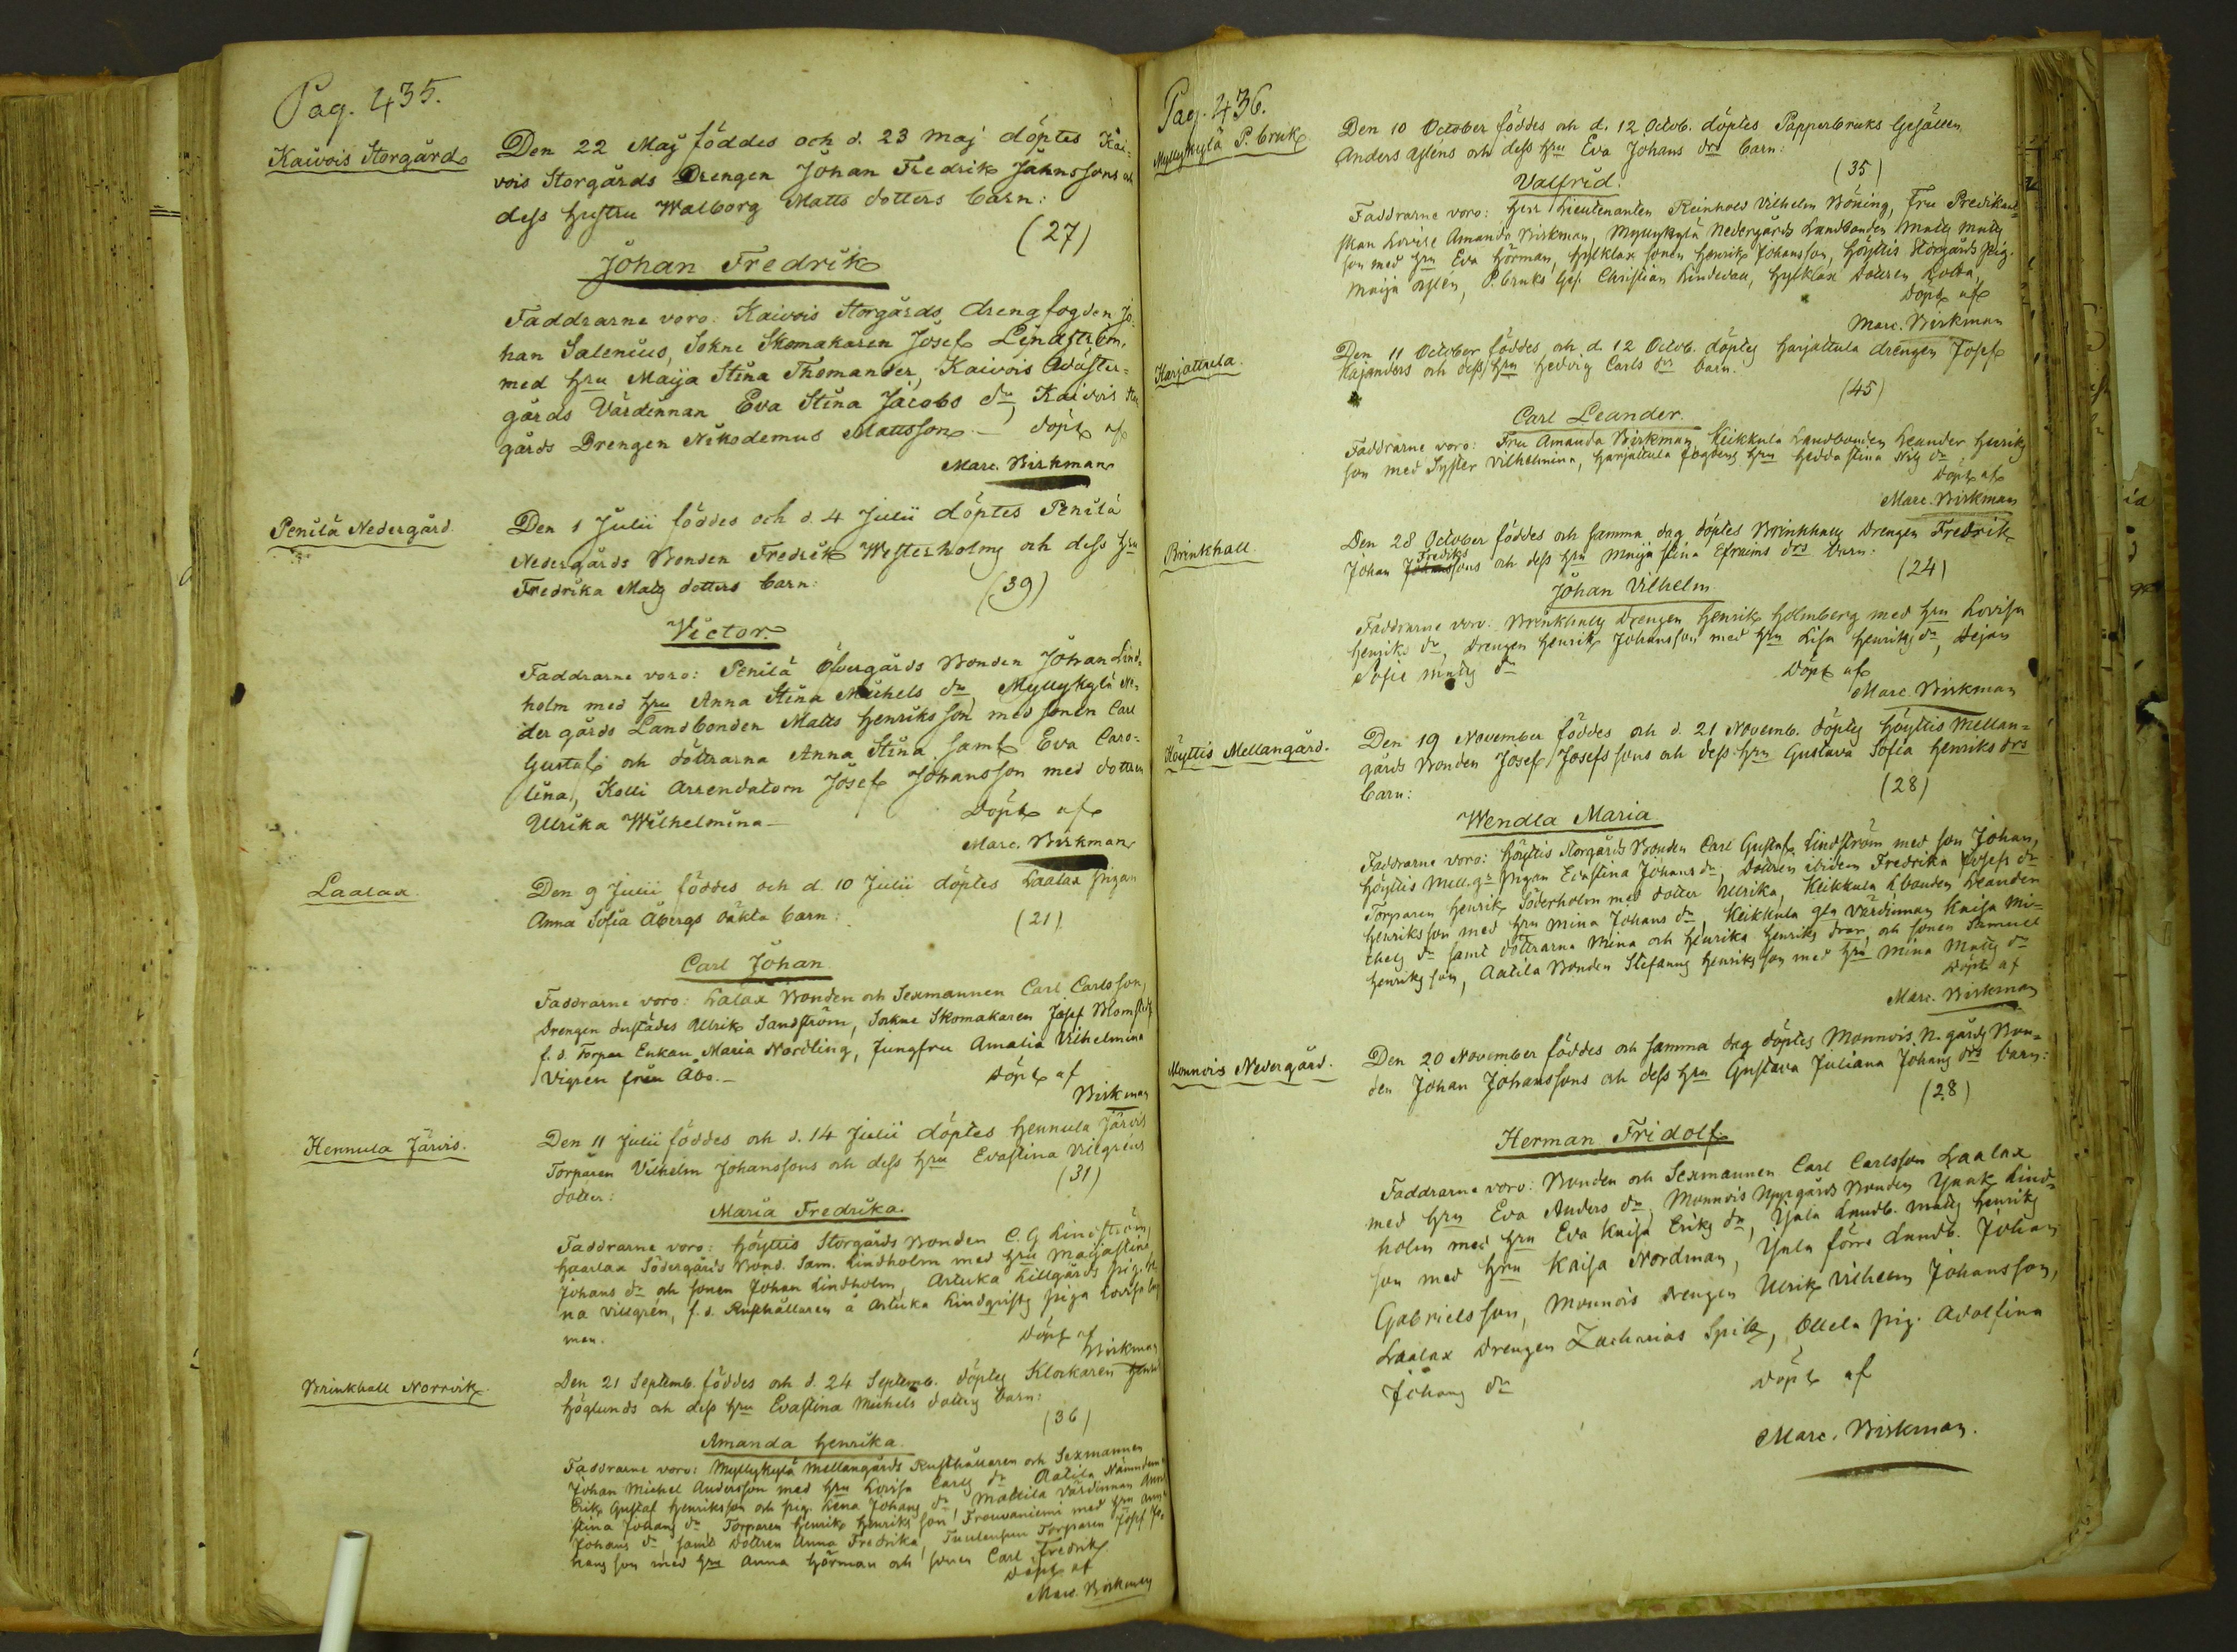 Pag. 435.
Kaivois Storgård
Den 22 Maj föddes och d. 23 Maj döptes Kai-
vois Storgårds Drengen Johan Fredrik Jahnssons och
dess hustru Walborg Matts dotters barn:
(27)
Johan Fredrik
Faddrarne voro: Kaivois Storgårds drengfogden Jo-
han Salenius, Sokne Skomakaren Josef Lindström,
med hru Maija Stina Thomander, Kaivois
gårds Värdinnan Eva Stina Jacobs dr, Kaivois Stor
gårds Drengen Nikodemus Mattsson. — Döpt af
Marc. Birkman
Penilä Nedergård
Den 1 Julii föddes och d. 4 Julii döptes Penilä
Nedergårds Bonden Fredrik Westerholms och dess hru
Fredrika Mats dotters barn:
(39)
Victor.
Faddrarne voro: Penilä Öfvergårds Bonden Johan Lind-
holm med hru Anna Stina Michels dr, Myllykylä Ne-
der gårds Landbonden Matts Henriksson med sonen Carl
Gustaf och döttrarna Anna Stina samt Eva Caro-
lina, Kolli Arrendatorn Josef Johansson med dottren
Ullrika Wilhelmina —
Döpt af
Marc. Birkman
Laalax
Den 9 Julii föddes och d. 10 Julii döptes Laalax pigan
Anna Sofia Åbergs oäkta barn:
(21)
Carl Johan
Faddrarne voro: Lalax Bonden och Sexmannen Carl Carlsson,
Drengen dustädes Ullrik Sandström, Sockne Skomakaren Josef Blomstedt
f. d. Torpar Enkan Maria Nordling, Jungfru Amalia Vilhelmina
Vigren från Åbo. —
Döpt af
Birkman
Hennula Järvis.
Den 11 Julii föddes och d. 14 Julii döptes Hennula Järvis
Torparen Vilhelm Johanssons och dess hru Evastina Villgréns
dotter:
(31)
Maria Fredrika.
Faddrarne voro: Höyttis Storgårds Bonden C. G Lindström,
Haarlax Södergårds Bond. Sam. Lindholm med hru Maijastina
Johans dr och sonen Johan Lindholm, Artuka Lillgårds pig.
na Villgrén, f. d. Rusthållaren å Artuka Lindqvists piga Lovisa
man.
Döpt af
Birkman
Brinkhall Norrvik
Den 21 Septemb. föddes och d. 24 Septemb. döptes Klockaren
Höglunds och dess hru Evastina Michels dotters barn:
(36)
Amanda Henrika
Faddrarne voro: Myllykylä Mellangårds Rusthållaren och Sexmannen
Johan Michel Andersson med hru Lovisa Carls dr Aatila
Erik Gustaf Henriksson och pig. Lena Johans dr, Mattila Värdinnan Anna
stina Johans dr Torparen Henrik Henriksson, Frouvaniemi med hru
Johans dr, samt dottren Anna Fredrika, Torparen Josef Jo-
hansson med hru Anna Hörman och sonen Carl Fredrik
Döpt af
Marc. Birkman
Pag. 436.
Myllykylä P. bruk
Den 10 October föddes och d. 12 Octob. döptes Papperbruks Gesällen
Anders Asléns och dess hru Eva Johans drs barn:
(35)
Valfrid.
Faddrarne voro: Herr Lieutenanten Reinhold Vilhelm Böning, Fru Predikant-
skan Lovise Amanda Birkman, Myllykylä Nedergårds Landbonden Matts Matts
son med hru Eva Hörman, Hylklax sonen Henrik Johansson, Höyttis Storgårds pig.
Maija Aslén, P. bruks Ges. Christian Lindevall, Hylklax Dottren Lotta,
Döpt af
Marc. Birkman
Harjattula.
Den 11 October föddes och d. 12 Octob. döptes Harjattula drengen Josef
Kajanders och dess hru Hedvig Carls drs barn.
(45)
Carl Leander.
Faddrarne voro: Fru Amanda Birkman, Keikkula Landbonden Leander Henriks
son med Syster Vilhelmina, Harjattula fogdens hru Hedda Stina Nils dr
Döpt af
Marc. Birkman
Brinkhall.
Den 28 October föddes och samma dag döptes Brinkhalls Drengen Fredrik
Fredriks
Johan Johanssons och dess hru Maija Stina Efraims drs barn:
(24)
Johan Vilhelm
Faddrarne voro: Brinkhalls Drengen Henrik Holmberg med hru Lovisa
Henriks dr, Drengen Henrik Johansson med hru Lisa Henriks dr, Dejan
Sofie Matts dr
Döpt af
Marc. Birkman
Höyttis Mellangård.
Den 19 November föddes och d. 21 Novemb. döptes Höyttis Mellan-
gårds Bonden Josef Josefssons och dess hru Gustava Sofia Henriks drs
barn:
(28)
Wendla Maria
Faddrarne voro: Höyttis Storgårds Bonden Carl Gustaf Lindström med son Johan,
Höyttis Mell.gs Pigan Evastina Johans dr, Dottren ibidem Fredrika Josefs dr
Torparen Henrik Söderholm med dotter Ullrika, Keikkula Lbonden Leander
Henriksson med hru Mina Johans dr, Keikkula gla Värdinnan Kaisa Mi-
chels dr samt döttrarna Mina och Henrika Henriks drar, och sonen Samuel
Henriksson, Aatila Bonden Stefanus Henriksson med hru Mina Matts dr
Döpt af
Marc. Birkman
Monnois Nedergård.
Den 20 November föddes och samma dag döptes Monnois N. gårds Bon-
den Johan Johanssons och dess hru Gustava Juliana Johans drs barn:
(28)
Herman Fridolf
Faddrarne voro: Bonden och Sexmannen Carl Carlsson Laalax
med hru Eva Anders dr, Monnois Uppgårds Bonden Isaak Lind-
holm med hru Eva Kaisa Eriks dr, Ylala Landb. Matts Henriks
son med hru Kaisa Nordman, Ylala förre Landb. Johan
Gabrielsson, Monnois Drengen Ulrik Vilhelm Johansson,
Laalax Drengen Zacharias Spik, Ollela pig. Adolfina
Johans dr
Döpt af
Marc. Birkman.